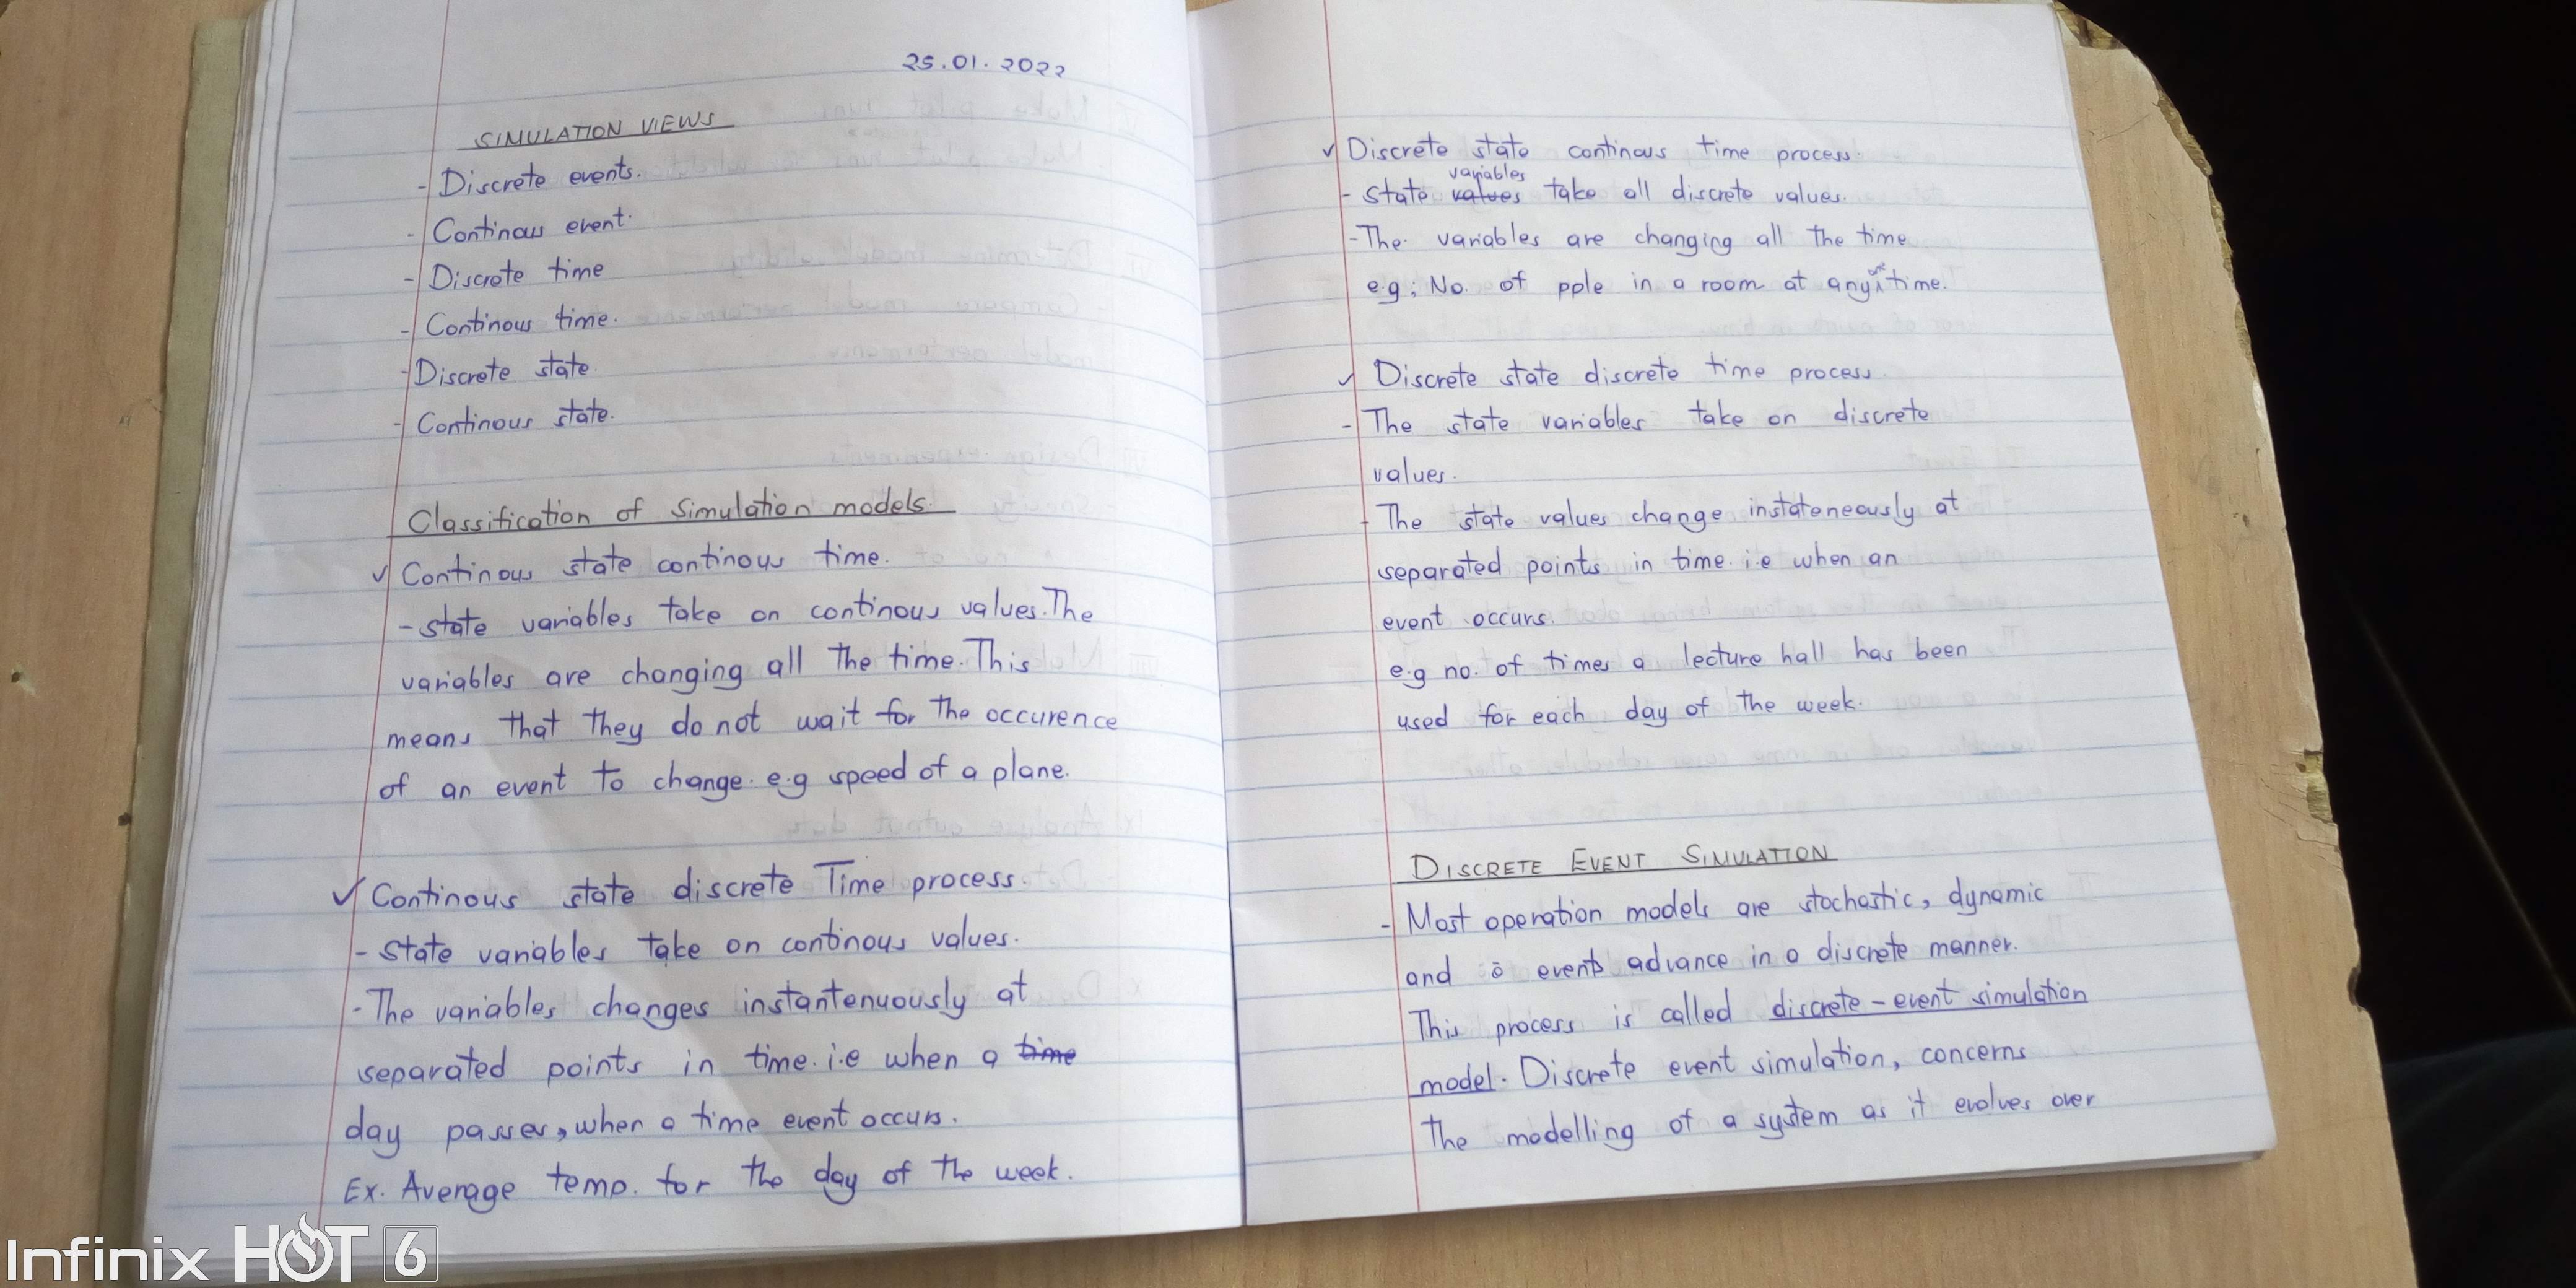 25.01.2022
SIMULATION VIEWS
- Discrete events.
- Continous event.
- Discrete time
- Continous time.
- Discrete state
- Continous state.
Classification of simulation models.
✓ Continous state continous time.
- state variables take on continous values. The
variables are changing all the time. This
means that they do not wait for the occurence
of an event to change. e.g speed of a plane.
✓ Continous state discrete Time process.
- state variables take on continous values.
- The variables changes instantenuously at
separated points in time. i.e when a time
day passes, when a time event occurs.
Ex. Average temp. for the day of the week.
✓ Discrete state continous time process.
variables
- state values take all discrete values.
- The variables are changing all the time
e.g; No. of pple in a room at any time.
✓ Discrete state discrete time process.
- The state variables take on discrete
values.
- The state values change instateneously at
separated points in time. i.e when an
event occurs.
e.g no. of times a lecture hall has been
used for each day of the week.
DISCRETE EVENT SIMULATION
- Most operation models are stochastic, dynamic
and events advance in a discrete manner.
This process is called discrete-event simulation
model. Discrete event simulation, concerns
the modelling of a system as it evolves over
Infinix HOT 6